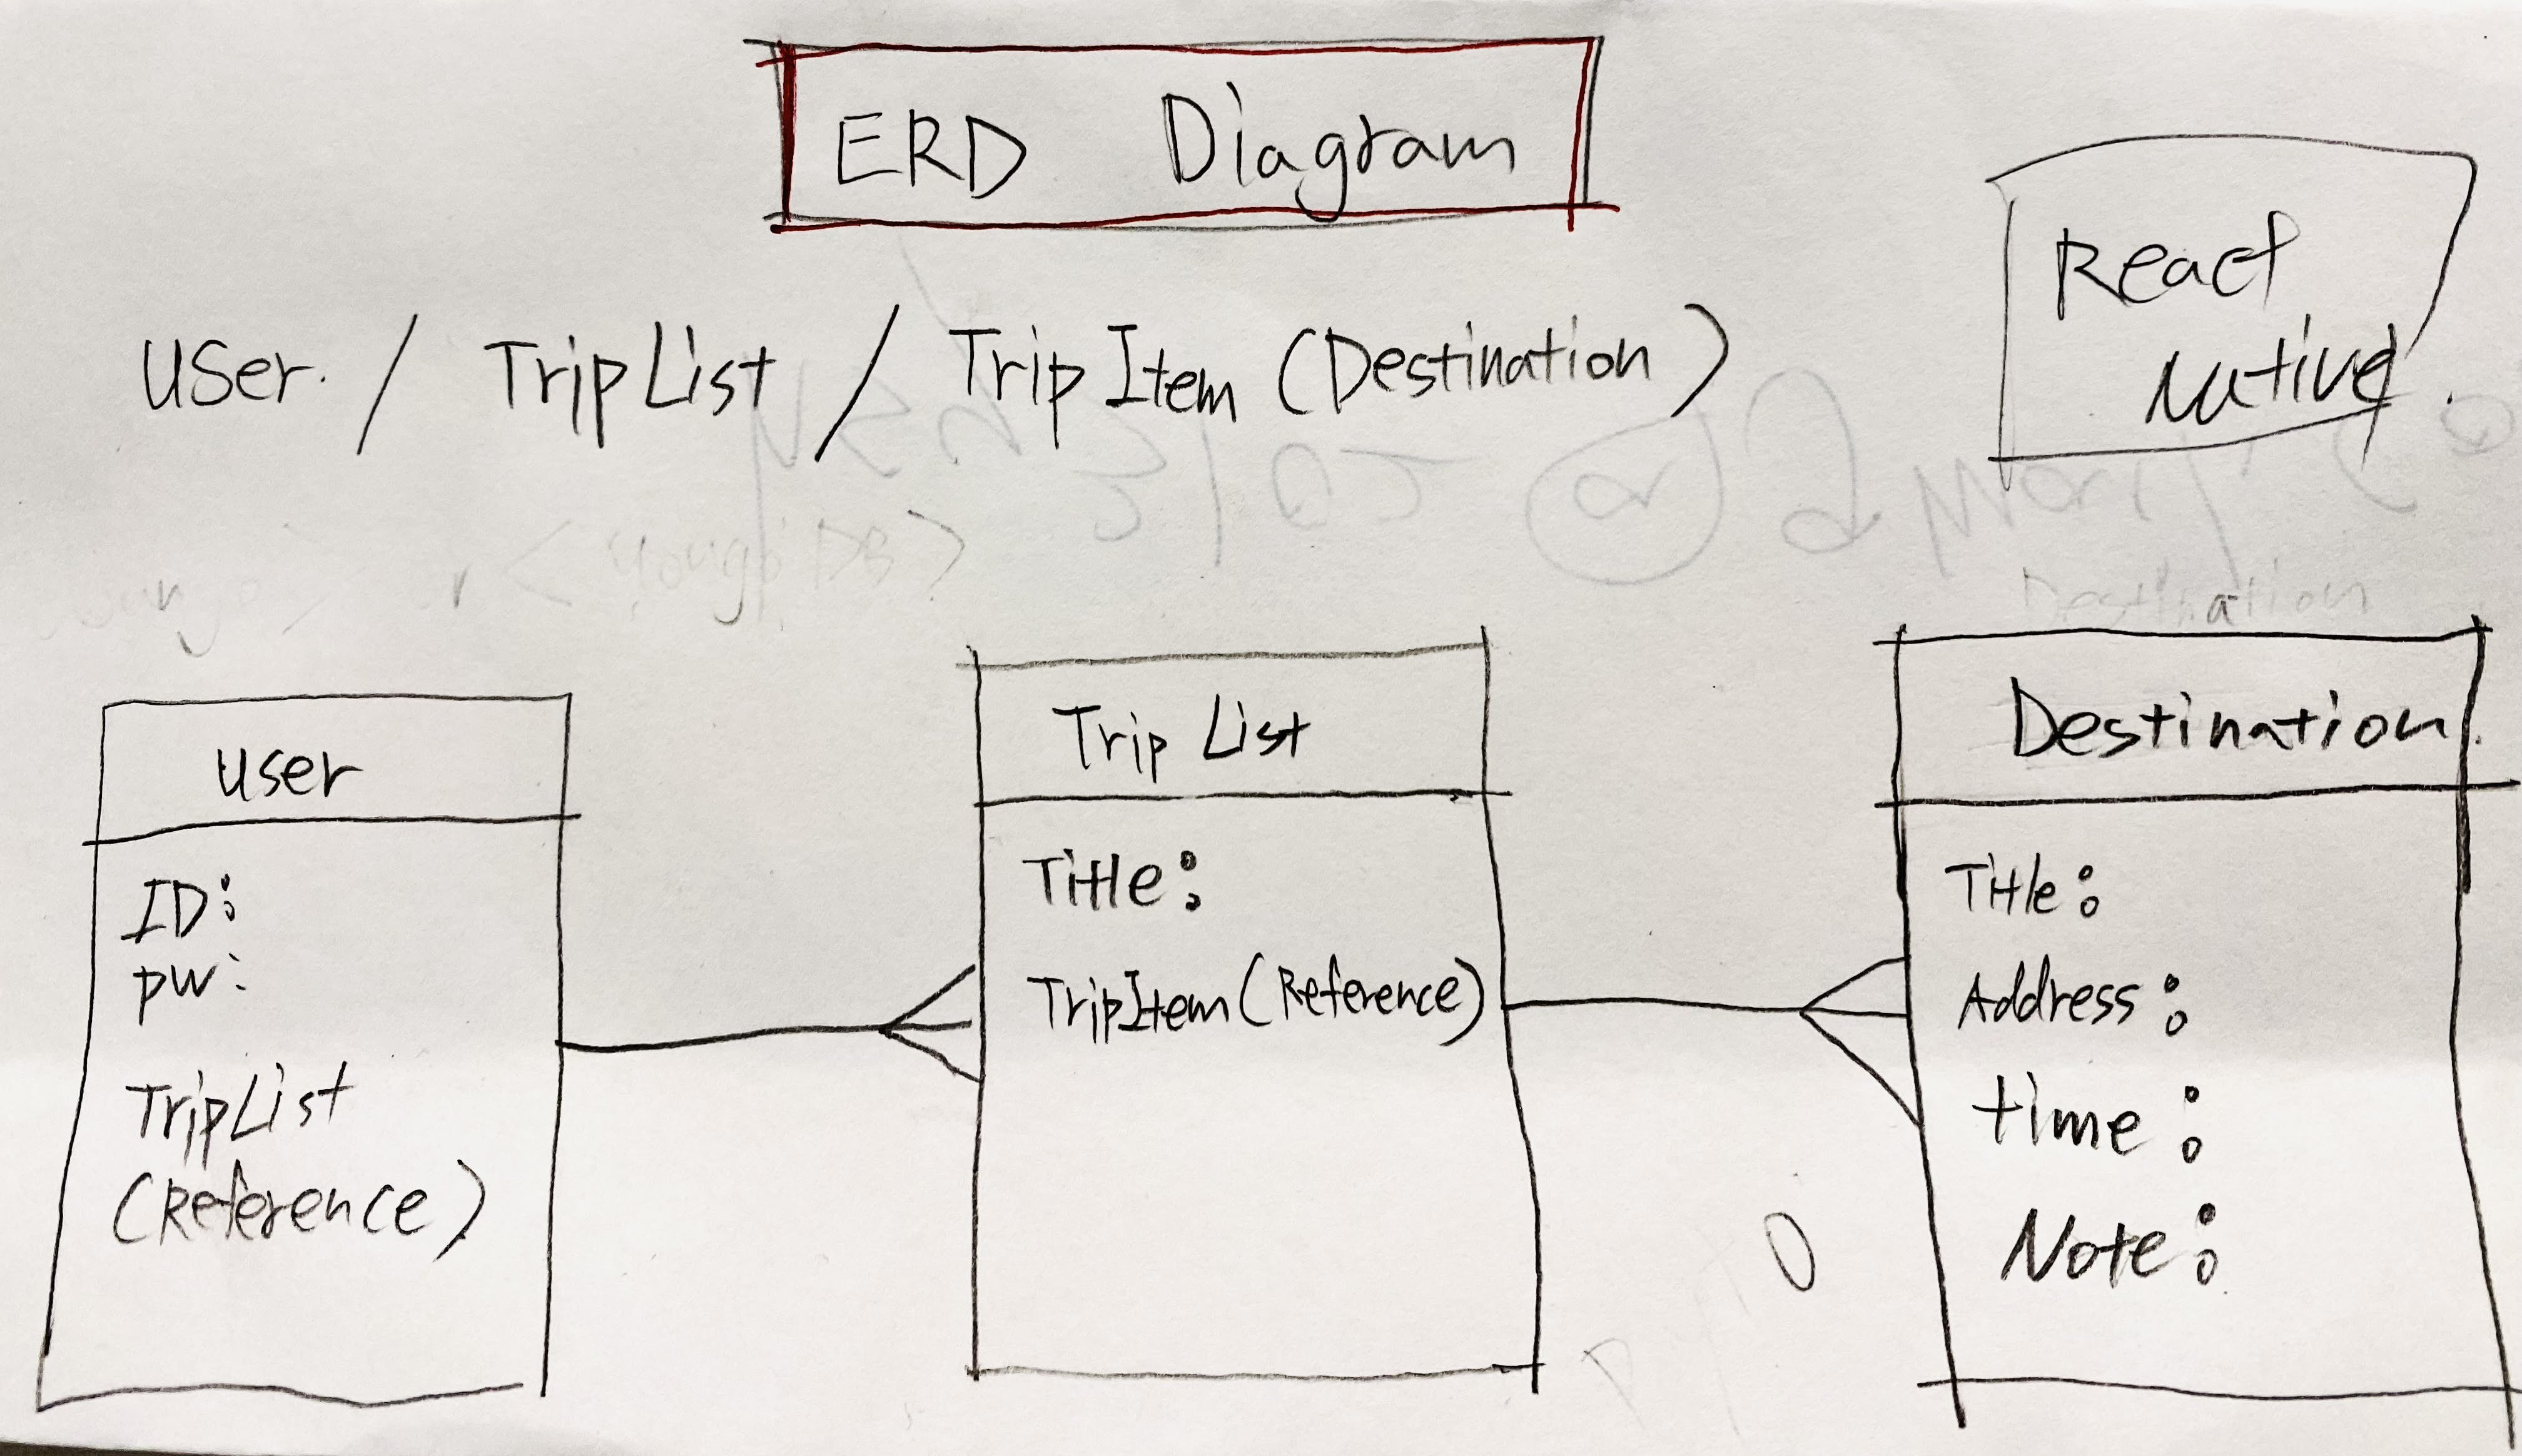 ERD Diagram
React
Native
User. / TripList / TripItem (Destination)
<MongoDB>
Destination
User
ID:
pw:
TripList
(Reference)
Trip List
Title:
TripItem (Reference)
Destination.
Title:
Address:
time:
Note: